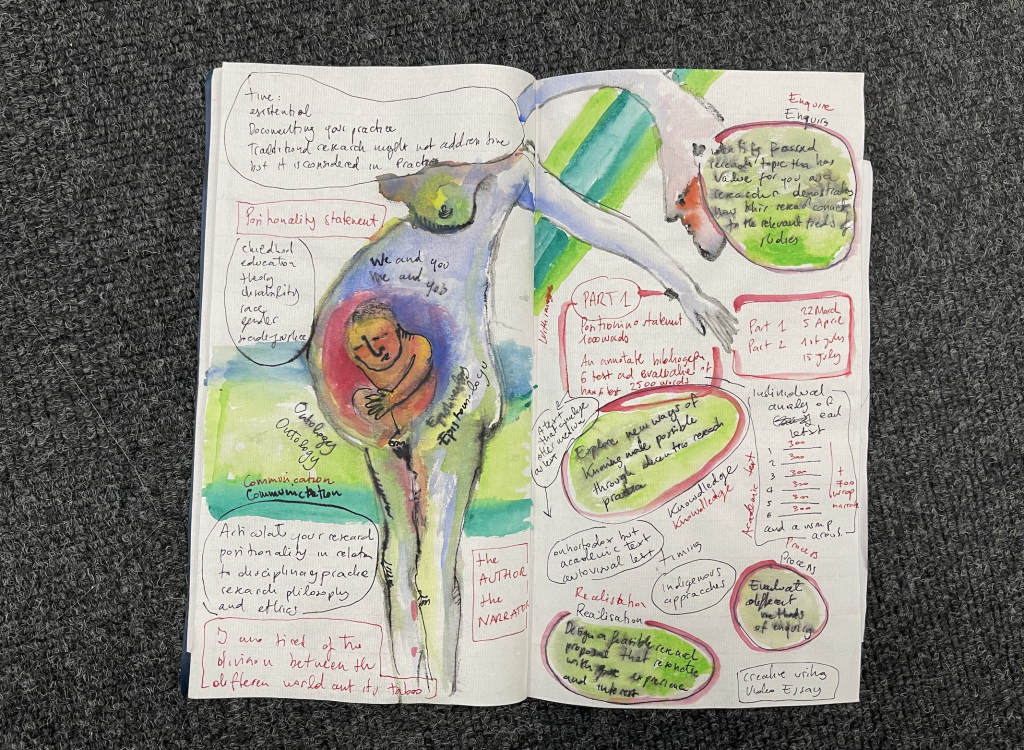 time:
existential
Documenting your practice
Traditional research might not address time
but it is considered in practice
Positionality statement
childhood
education
theory
durability
race
gender
We and you
me and you
Ontology
Ontology
Epistemology
Epistomology
Communication
Communication
Articulate your research
positionality in relation
to disciplinary practice
research philosophy
and ethics
the
AUTHOR
the
NARRATOR
I am tired of the
division between the
differen world and its taboo
Enquire
Enquire
focused
research topic that has
value for you as a
researcher demostrates
how this research connects
to the relevant fields of
studies
PART 1
Positioning statement
1000 words
An annotate bibliography
6 text and evaluation of
2500 words
22 March
Part 1 5 April
Part 2 1st July
15 July
A text
that analyse
other medium
as text
Explore new ways of
Knowing made possible
through decentric research
practice
Knowldledge
Knowldledge
Individual
analys of
each
text
Academic text
1 300
2 300
3 300
4 300
5 300
6 300
+
700
wrap
and a wrap
around
onhortodox but
academic text
audiovisual text
Timing
Indigenous
approaches
Process
Process
Evaluat
different
methods
of enquiry
Realisation
Reailsation
Design a feasible research
proposal that resonates
with your experience
and interest
creative writing
Video Essay